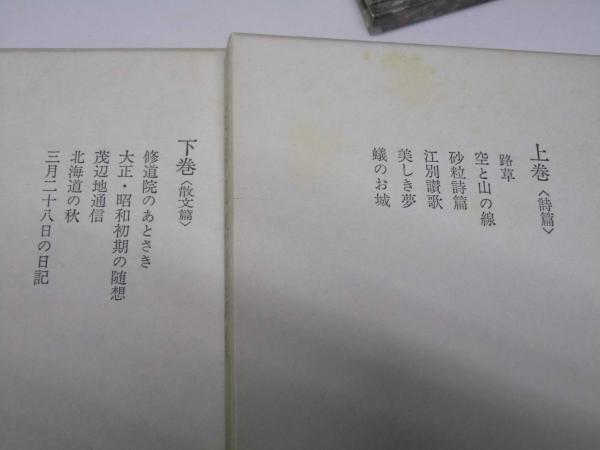 上巻〈詩篇〉
路草
空と山の線
砂粒詩篇
江別讃歌
美しき夢
蟻のお城
下巻〈散文篇〉
修道院のあとさき
大正・昭和初期の随想
茂辺地通信
北海道の秋
三月二十八日の日記